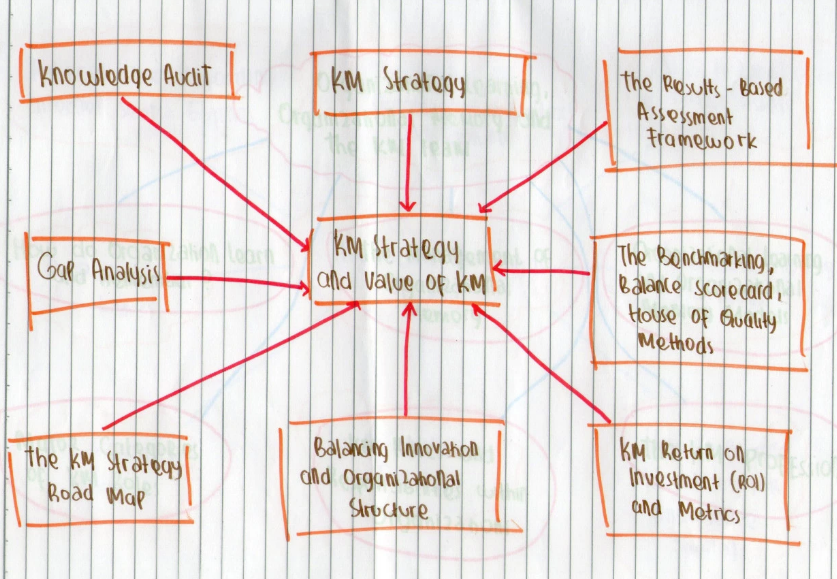 Knowledge Audit
KM Strategy
The Results - Based
Assessment
Framework
Gap Analysis
KM Strategy
and Value of KM
The Benchmarking,
Balance Scorecard,
House of Quality
Methods
The KM Strategy
Road Map
Balancing Innovation
and Organizational
Structure
KM Return on
Investment (ROI)
and Metrics